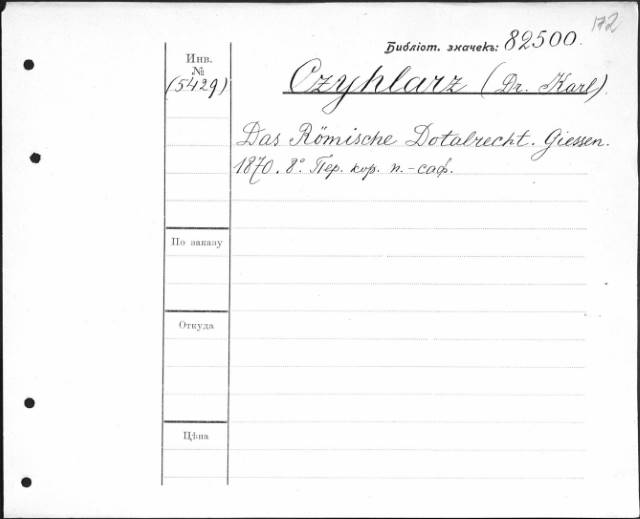 172
Библіот. значекъ: 82500.
Инв.
№
(5429)
Czyhlarz (Dr. Karl).
Das Römische Dotalrecht. Giessen.
1870. 8° Пер. кор. п.-саф.
По заказу
Откуда
Цѣна